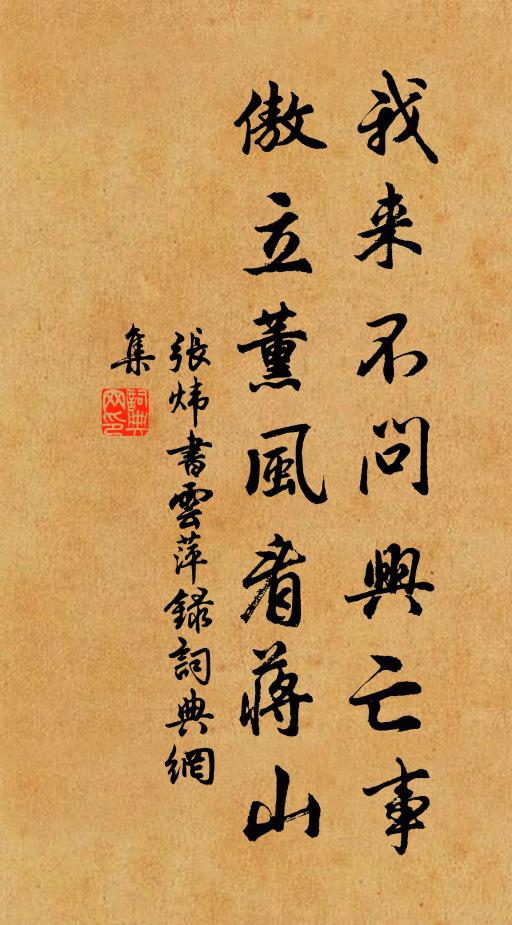 我来不问興亡事
傲立薰風看蔣山
張炜書雲萍録詞典網
集
詞典
网印